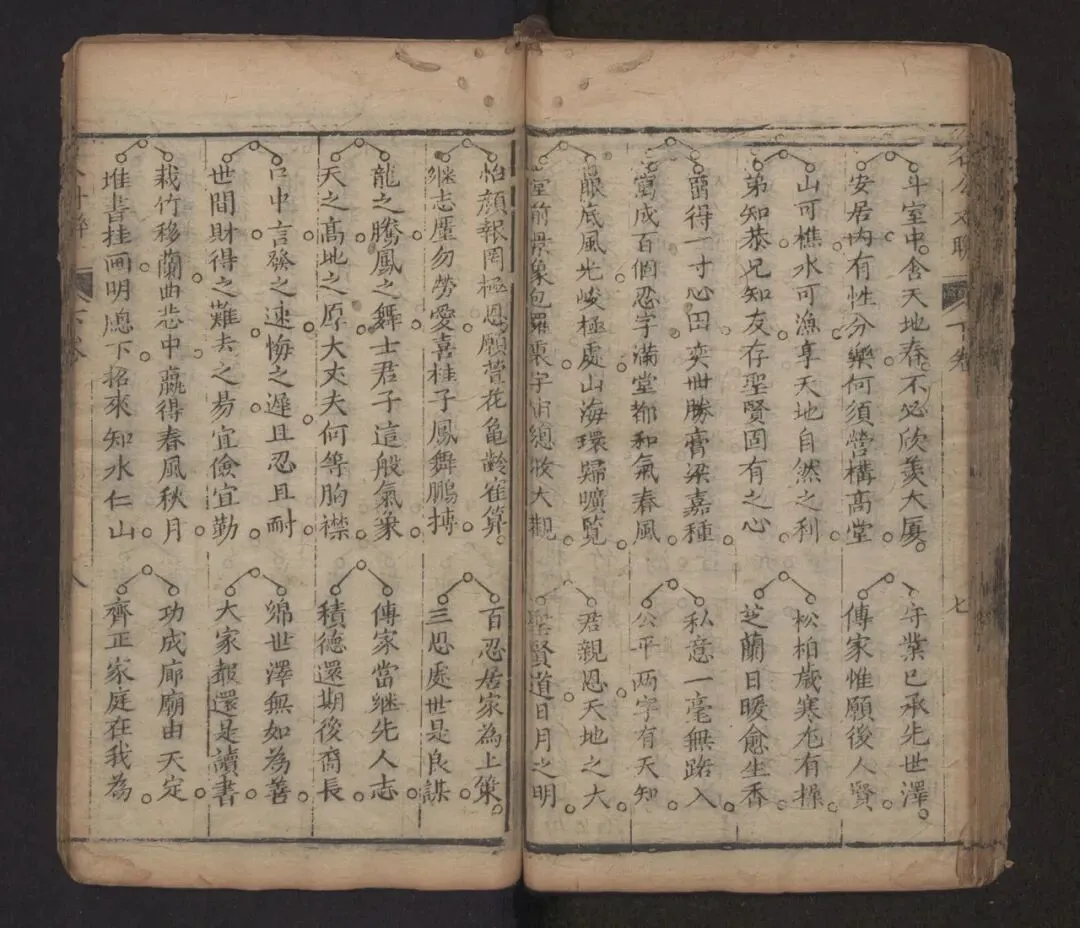 斗室中含天地春不必欣羨大厦
安居内有性分樂何須營構高堂
山可樵水可漁享天地自然之利
弟知恭兄知友存聖賢固有之心
畱得一寸心田奕世勝膏粱嘉種
寫成百個忍字滿堂都和氣春風
眼底風光峻極處山海環歸曠覧
堂前景象包羅裏宇宙總收大觀
守業已承先世澤
傳家惟願後人賢
松柏歲寒尨有操
芝蘭日暖愈生香
私意一毫無路入
公平両字有天知
君親恩天地之大
聖賢道日月之明
下卷
七
怡顏報罔極恩願萱花亀齡寉筭
継志塵勿勞愛喜桂子鳳舞鵬摶
龍之騰鳳之舞士君子這般氣象
天之髙地之原大丈夫何等胸襟
口中言發之速悔之遲且忍且耐
世間財得之難去之昜宜儉宜勤
栽竹移蘭曲悲中贏得春風秋月
堆書挂畫明牎下招來知水仁山
百忍居家為上策
三思處世是良謀
傳家當継先人志
積德還期後裔長
綿世澤無如為善
大家聲還是讀書
功成廊廟由天定
齊正家庭在我為